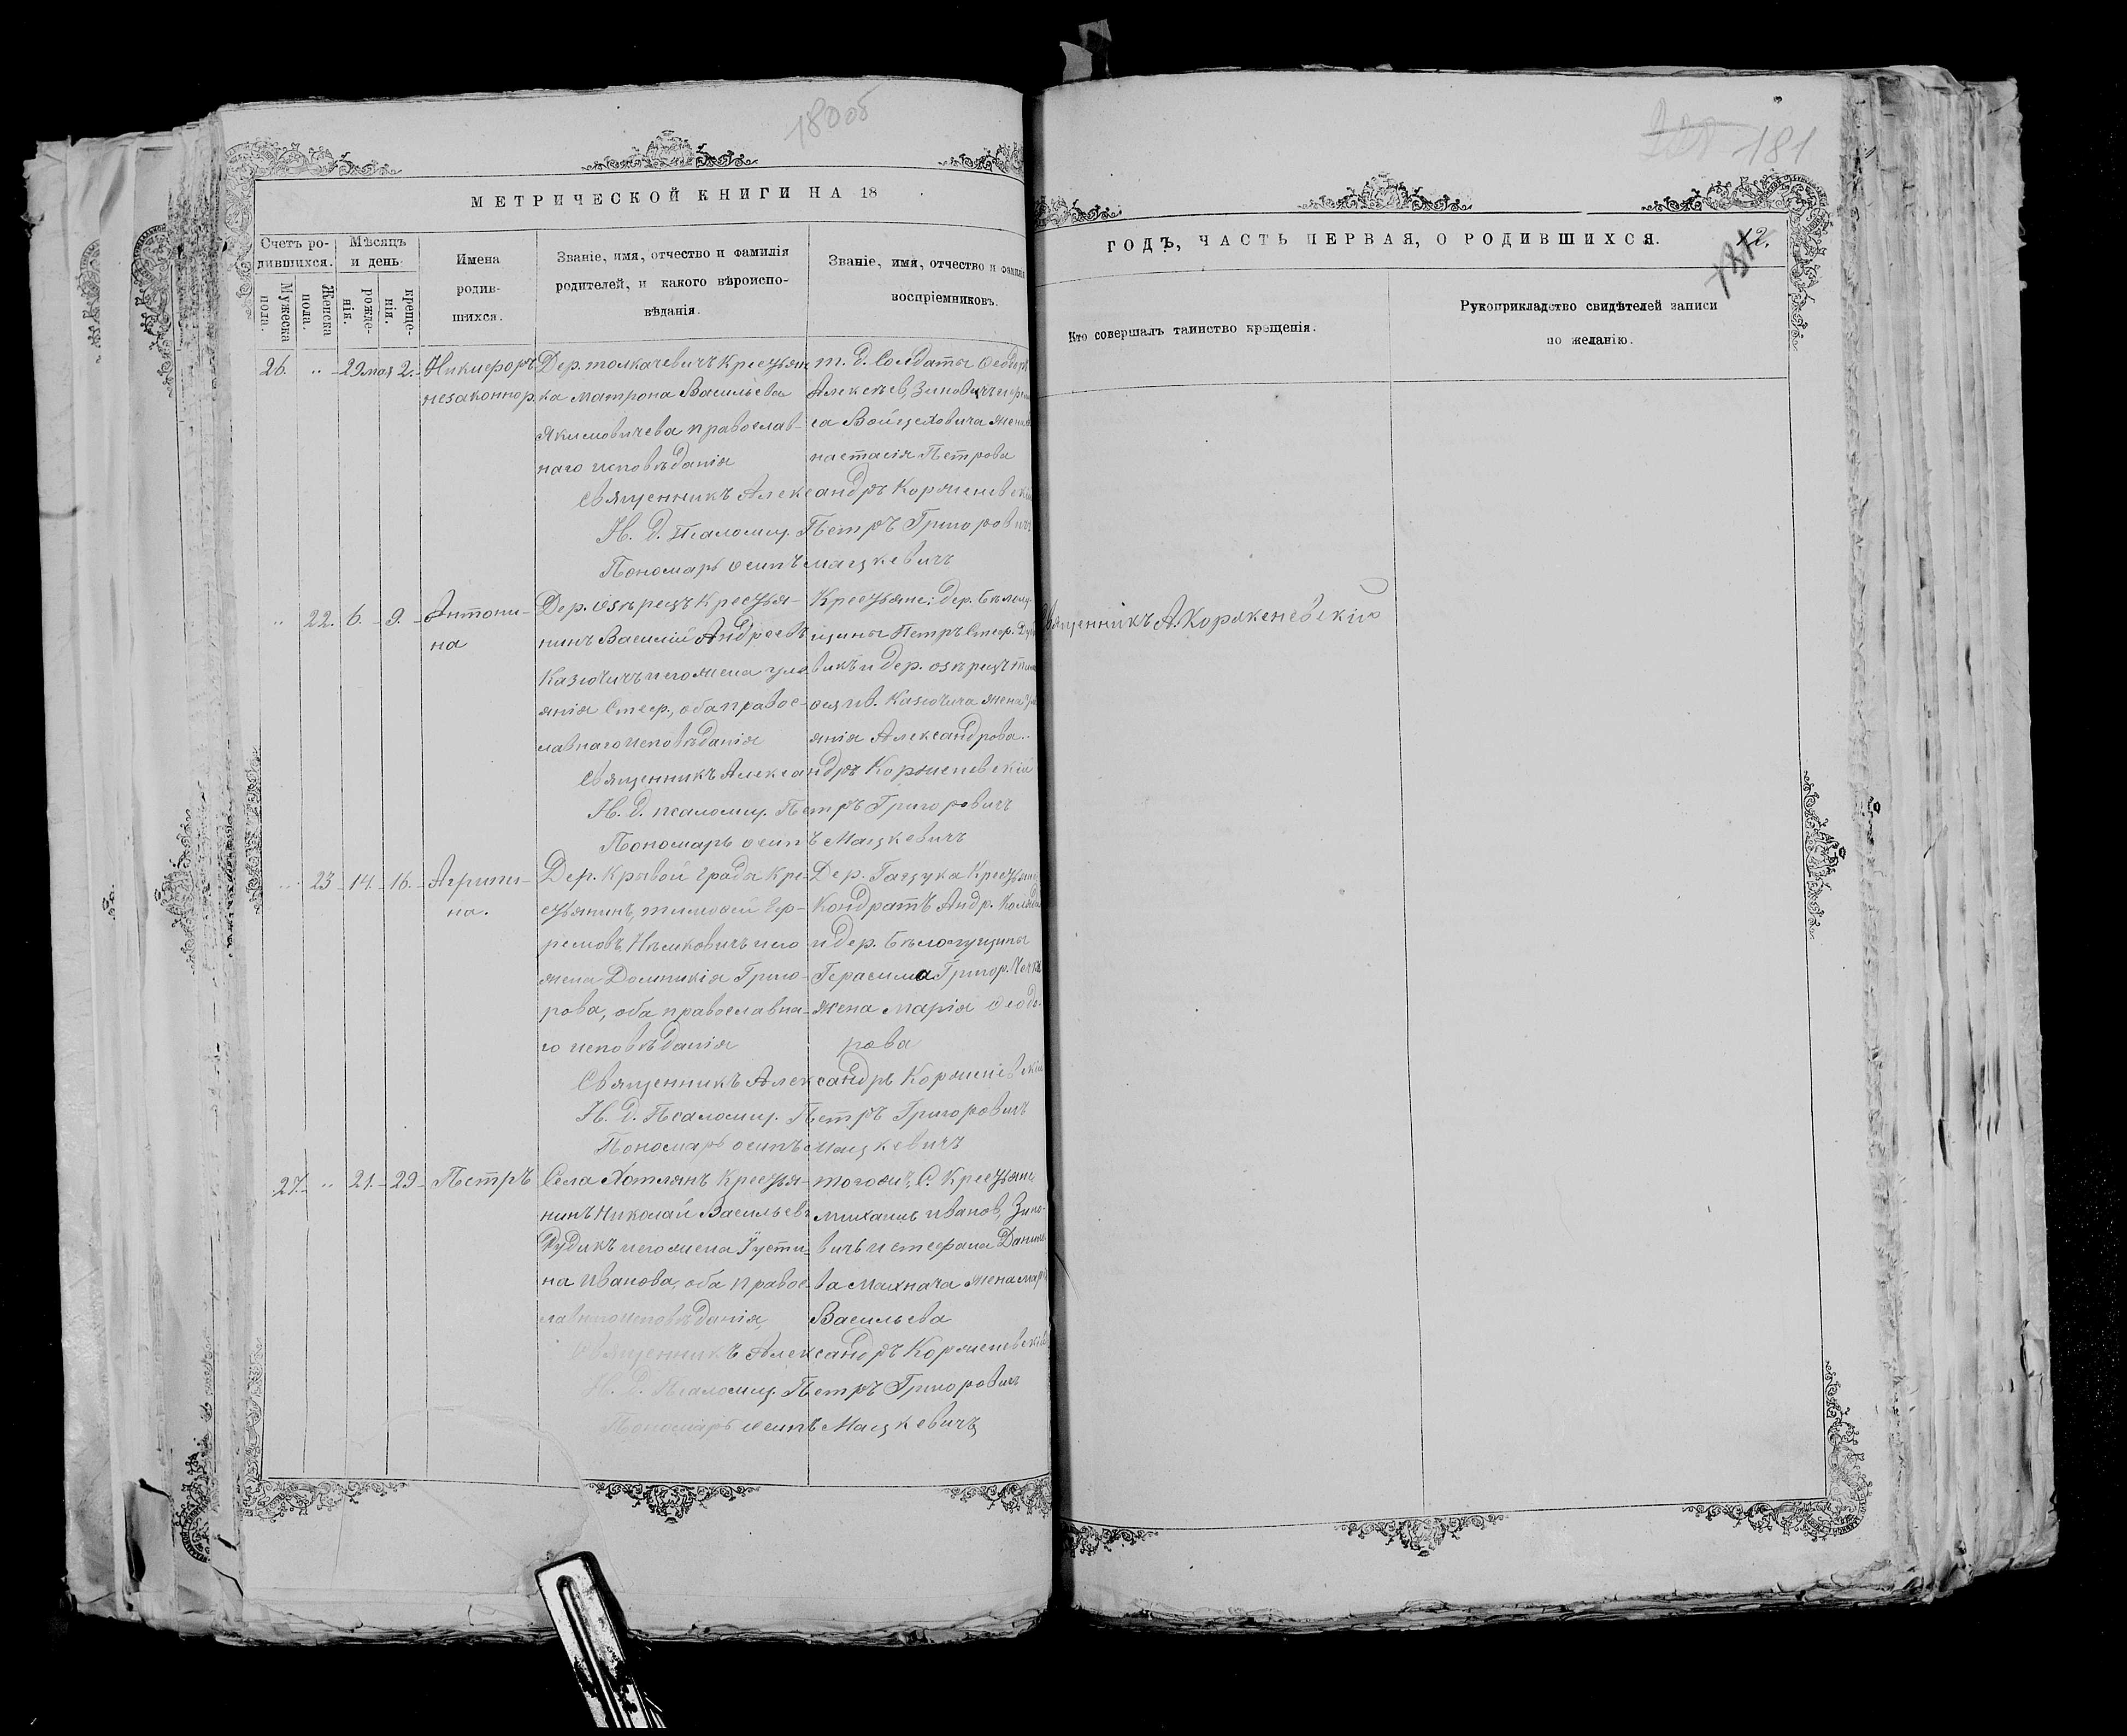 180об
МЕТРИЧЕСКОЙ КНИГИ НА 18
Счетъ ро-
дившихся.
Мѣсяцъ
и день
Мужеска
пола.
Женска
пола.
рожде-
нія.
креще-
нія.
Имена
родив-
шихся.
Званіе, имя, отчество и фамилія
родителей, и какого вѣроиспо-
вѣданія.
Званіе, имя, отчество и фамилія
воспріемниковъ.
26. " 29 мая 2. Никифоръ
незаконнор.
Дер. Толкачевичъ Крестьян
ка Матрона Васильева
Якимовичева православ-
наго исповѣданія
т. д. Солдаты Ѳеодоръ
Алексѣев, Зиновичъ и
са Войцеховича жена
настасія Петрова
Священникъ Александръ Корженевскій
И. Д. Псаломщ. Петръ Григоровичъ
Пономарь Осипъ Мацкевичъ
" 22. 6. 9. Антони-
на
Дер. Озѣрецъ Крестья-
нинъ Василій Андреевъ
Казючичъ и его жена Уль-
янія Стеф., оба правос-
лавнаго исповѣданія
Крестьяне: дер. Бѣлогу-
щины Петръ Стеф.
викъ и дер. Озѣрецъ Тимо
ѳея Ив. Казючича жена
янія Александрова.
Священникъ Александръ Корженевскій
И. Д. псаломщ. Петръ Григоровичъ
Пономарь Осипъ Мацкевичъ
" 23 14. 16. Агрипи-
на.
Дер. Крывой Грады Кре-
стьянинъ, Тимоѳей Еф-
ремовъ, Нѣмковичъ и его
жена Домникія Григо-
рова, оба православна-
го исповѣданія
Дер. Гацука Крестьяне
Кондратъ Андр.
и дер. Бѣлогущины
Герасима Григор.
жена Марія Ѳеодо-
рова
Священникъ Александръ Корженевскій
И. Д. Псаломщ. Петръ Григоровичъ
Пономарь Осипъ Мацкевичъ
27. " 21. 29 Петръ
Села Хотлянъ Крестья-
нинъ Николай Васильевъ
Дудикъ и его жена Іусти-
на Иванова, оба Правос-
лавнаго исповѣданія
тогожъ С. Крестьяне
Михаилъ Иванов, Зино-
вичъ и Стефана Данило
ва Махнача жена Мар
Васильева
Священникъ Александръ Корженевскій
И. Д. Псаломщ. Петръ Григоровичъ
Пономарь Осипъ Мацкевичъ
181
ГОДЪ, ЧАСТЬ ПЕРВАЯ, О РОДИВШИХСЯ.
12.
Кто совершалъ таинство крещенія.
Рукоприкладство свидѣтелей записи
по желанію.
Священникъ А. Корженевскій